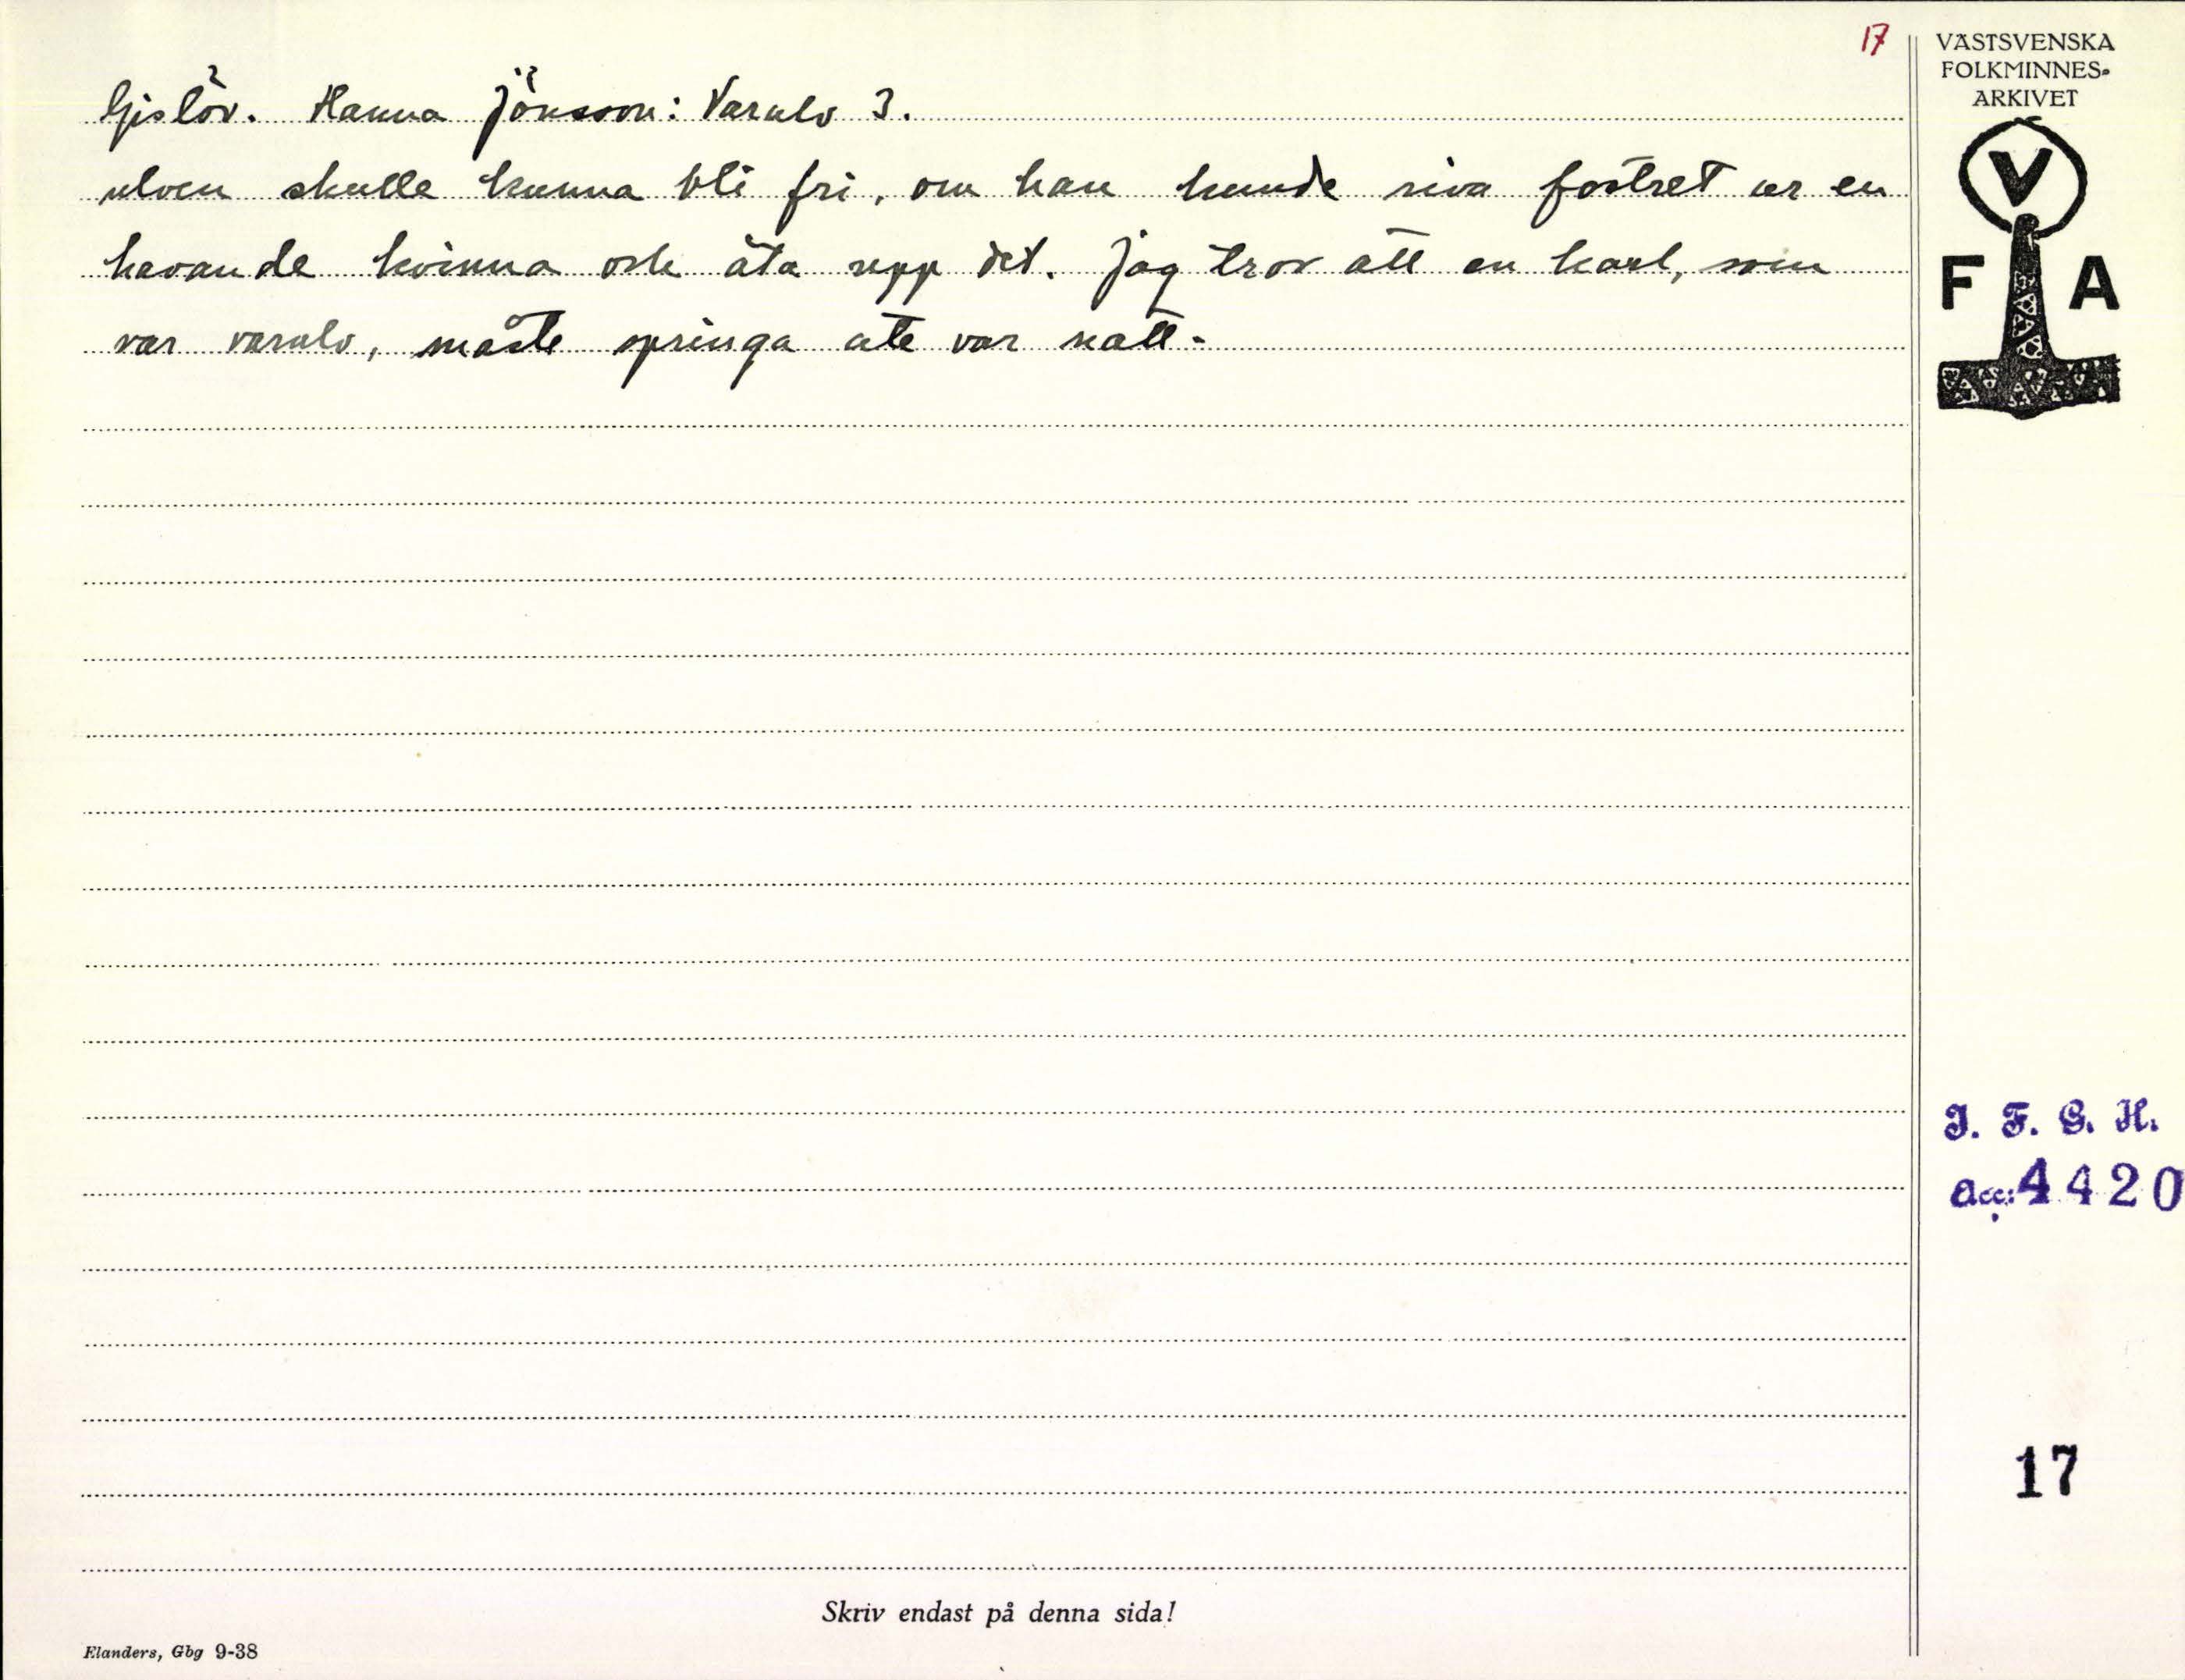 17
Gislöv. Hanna Jönsson: Varulv 3.
ulven skulle kunna bli fri, om han kunde riva fostret ur en
havande kvinna och äta upp det. Jag tror att en karl, som
var varulv, måste springa ute var natt.
VÄSTSVENSKA
FOLKMINNES-
ARKIVET
V
F A
I. F. G. H.
acc: 4420
17
Skriv endast på denna sida!
Elanders, Gbg 9-38